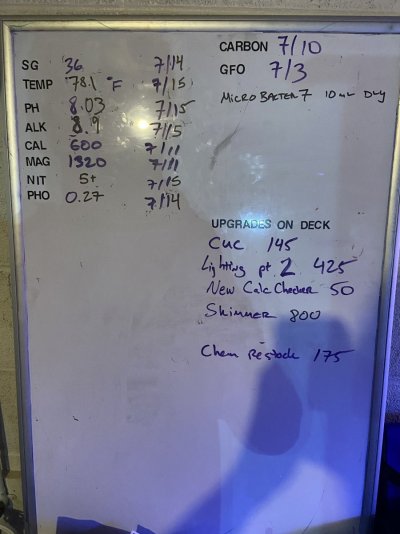 SG 36 7/14
TEMP 78.1 °F 7/15
PH 8.03 7/15
ALK 8.9 7/15
CAL 600 7/11
MAG 1320 7/11
NIT 5+ 7/15
PHO 0.27 7/14
CARBON 7/10
GFO 7/3
MicroBacter 7 10 mL Day
UPGRADES ON DECK
CUC 145
Lighting pt 2 425
New Calc Checker 50
Skimmer 800
Chem Restock 175